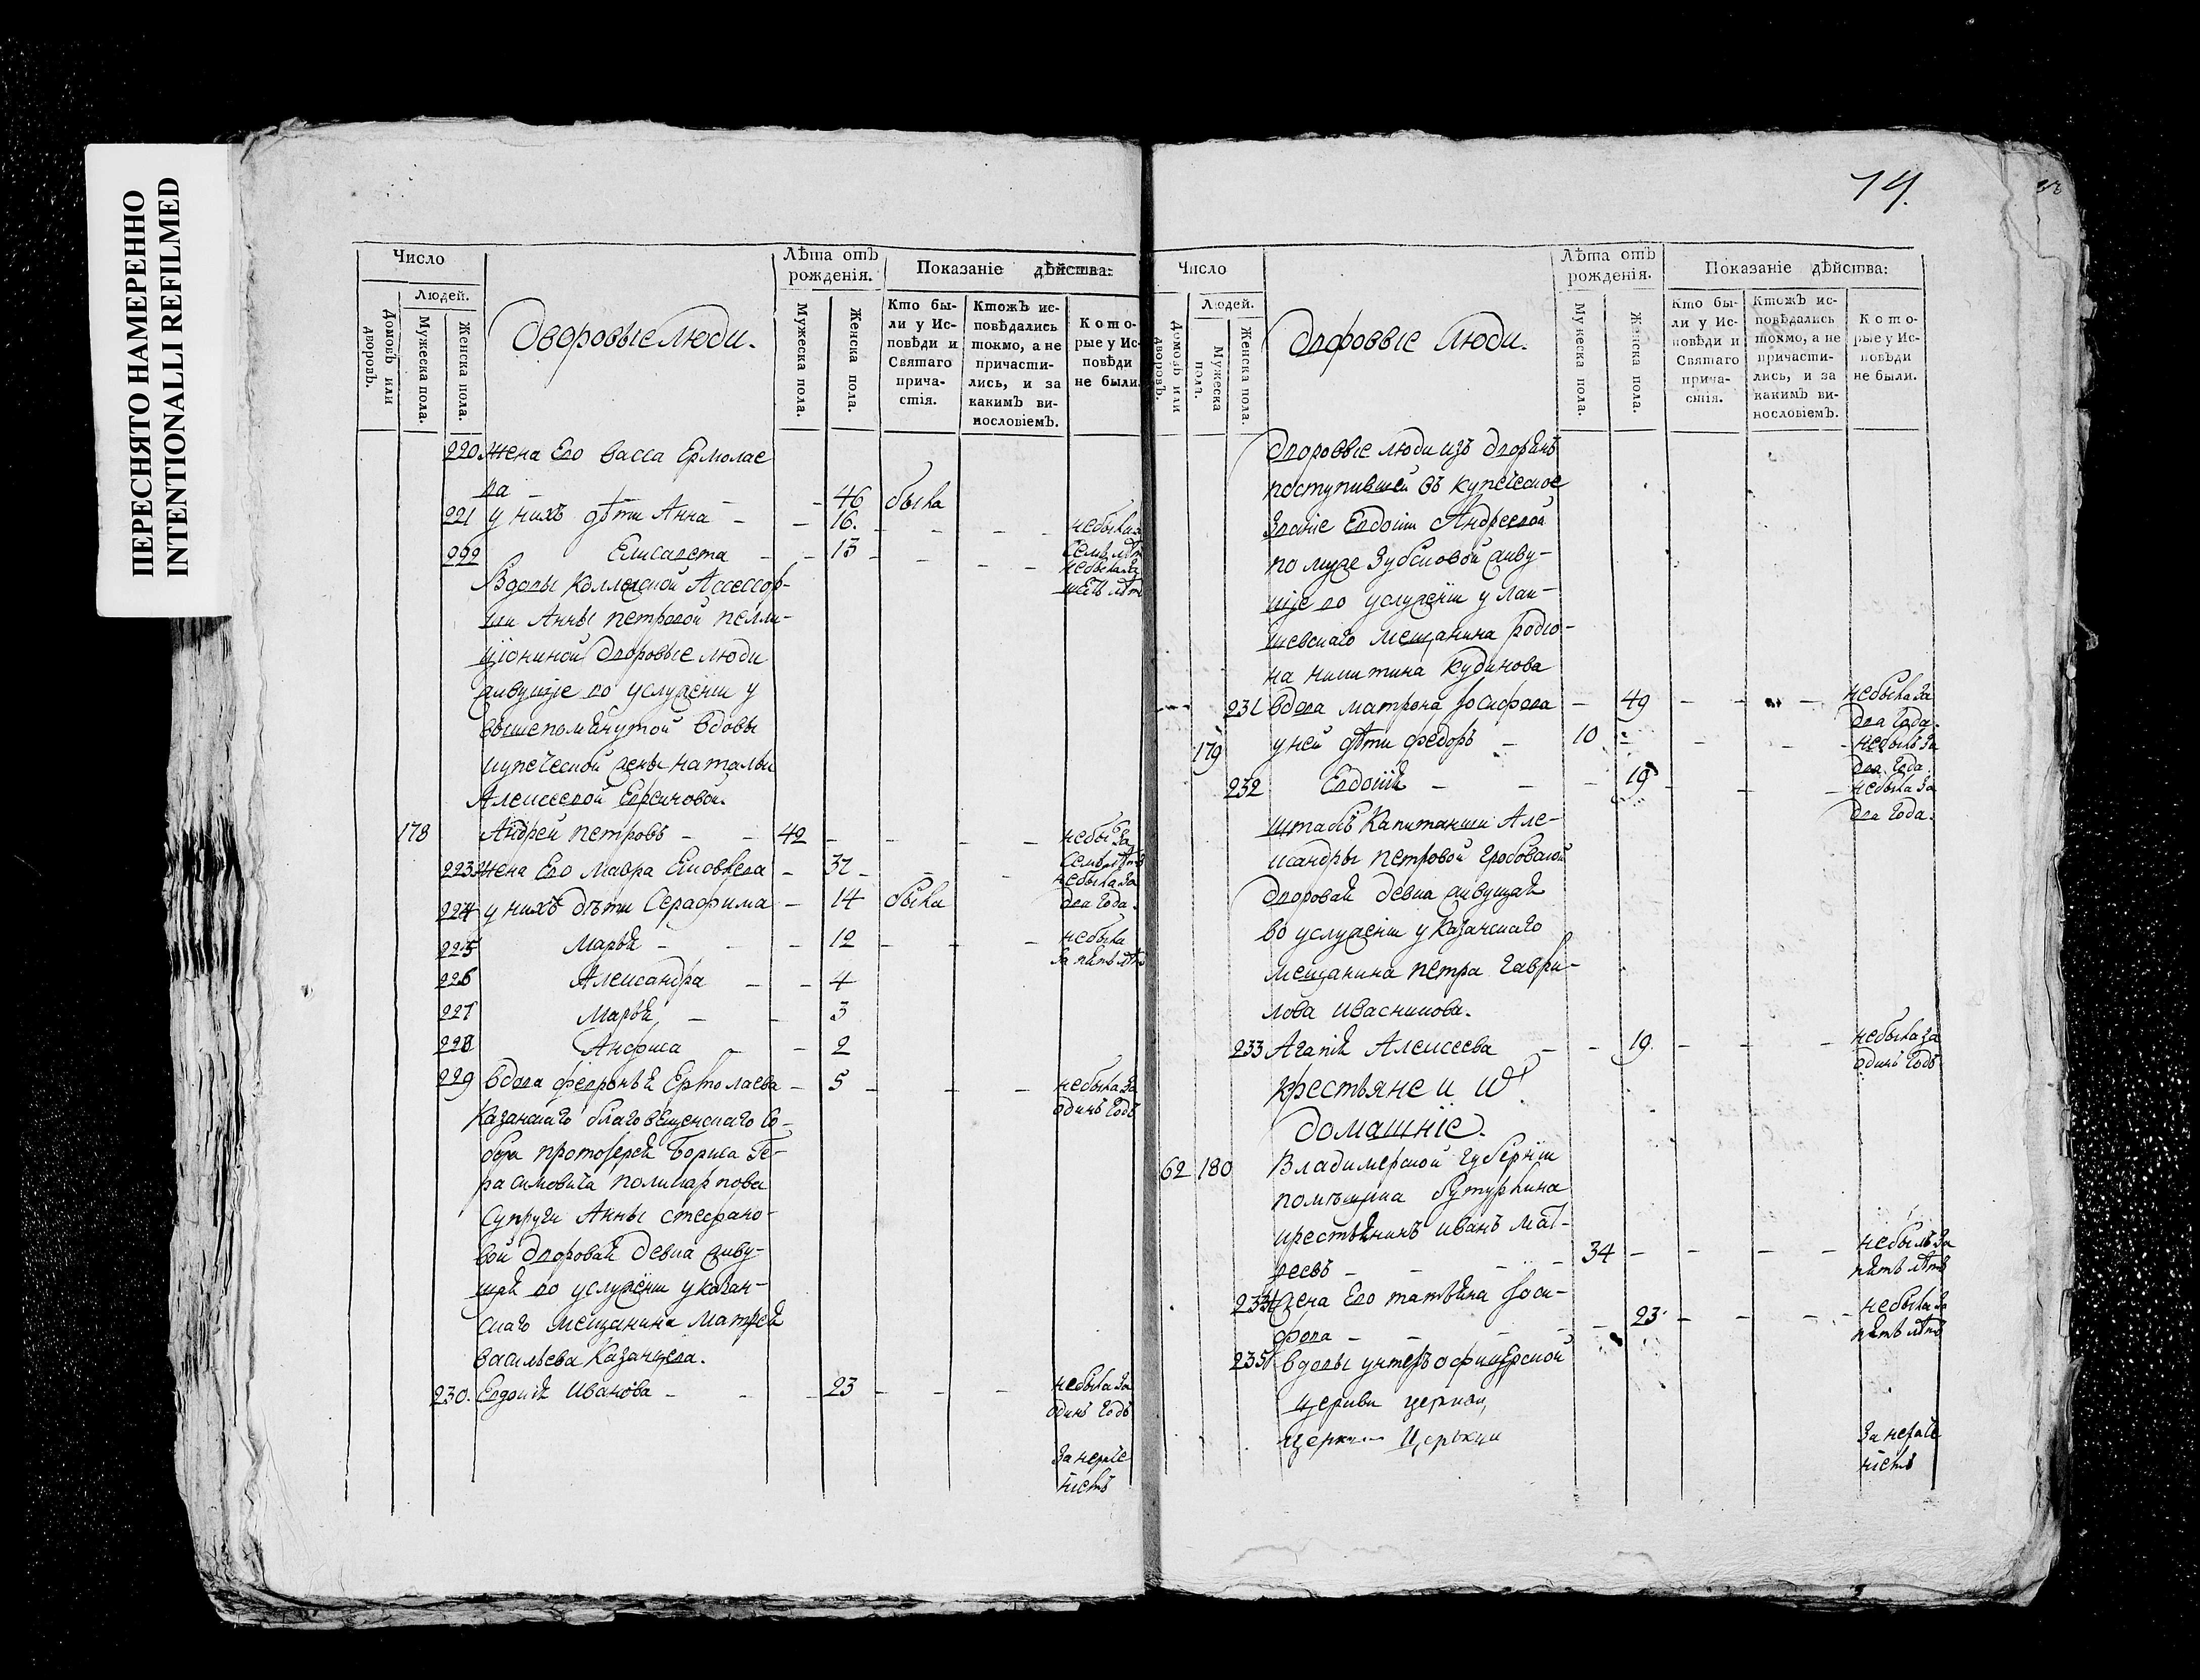 ПЕРЕСНЯТО НАМЕРЕННО
INTENTIONALLI REFILMED
14.
Число
Людей.
Домовъ или дворовъ.
Мужеска пола.
Женска пола.
Дворовые люди.
Лѣта отъ рожденія.
Мужеска пола.
Женска пола.
Показаніе дѣйства:
Кто бы-
ли у Ис-
повѣди и
Святаго
прича-
стія.
Ктожъ ис-
повѣдались
токмо, а не
причасти-
лись, и за
какимъ ви-
нословіемъ.
Кото-
рые у Ис-
повѣди
не были.
220 жена Его васса Ермолае
ва - - - - 46 была
221 у нихъ дѣти Анна - - 16. - - - небыла
семь лѣт
222 Елисавета - - 15 - - - небыла за
шесть лѣт
Вдовы Коллежской Ассессор-
ши Анны петровой пелли-
ціониной дворовые люди
живущіе во услуженіи у
вышепомянутой вдовы
купеческой жены натальи
Алексеевой
178 Андрей петровъ - - 42 - - - - небы за
семь лѣтъ
223 жена Его мавра - 32 - - - небыла за
два года.
224 у нихъ дѣти Серафима - 14 была
225 Марья - - - 12 - - - небыла
за пять лѣтъ
226 Александра - - 4
227 Марья - - 3
228 Анфиса - - 2
229 вдова февронья Ермолаева - 5 - - - небыла за
одинъ годъ
Казанскаго благовѣщенскаго Со-
бора протоіерея Бориса Ге-
расимовича поликарпова
Супруги Анны стефано-
вой дворовая девка живу-
щая во услуженіи у казан-
скаго мещанина Матвея
васильева Казанцева.
230. Евдокія Иванова - - - 23 - - - небыла за
одинъ годъ
За нераче
ніемъ
Число
Людей.
Домовъ или дворовъ.
Мужеска пола.
Женска пола.
Дворовые люди.
Лѣта отъ рожденія.
Мужеска пола.
Женска пола.
Показаніе дѣйства:
Кто бы-
ли у Ис-
повѣди и
Святаго
прича-
стія.
Ктожъ ис-
повѣдались
токмо, а не
причасти-
лись, и за
какимъ ви-
нословіемъ.
Кото-
рые у Ис-
повѣди
не были.
Дворовые люди изъ дворянъ
поступившей въ купеческое
званіе Евдокіи Андреевой
по муже Зубковой живу-
щіе во услуженіи у лаи-
шевскаго мещанина родіо-
на никитина кудинова
231 вдова матрона Іосифова - 49 - - - небыла за
два года.
179 у ней дѣти федоръ - 10 - - - небылъ за
два года
232 Евдокія - - - 19 - - - небыла за
два года.
штабсъ Капитанши Але-
ксандры петровой
дворовая девка живущая
во услуженіи у Казанскаго
мещанина петра Гаври-
лова Квасникова.
233 Агапія Алексеева - - 19. - - - небыла за
одинъ годъ
Крестьяне и Ѡ
домашніе.
62 180 Владимерской губерніи
помѣщика бутурлина
крестьянинъ иванъ мат-
веевъ - - - - 34 - - - - небылъ за
пять лѣтъ
234 жена Его татьяна Іоси-
фова - - - - 23 - - - - небыла за
пять лѣтъ
235 вдовы унтеръ офицерской
Церкви церкви,
Церкви Церькви
За нераче
ніемъ